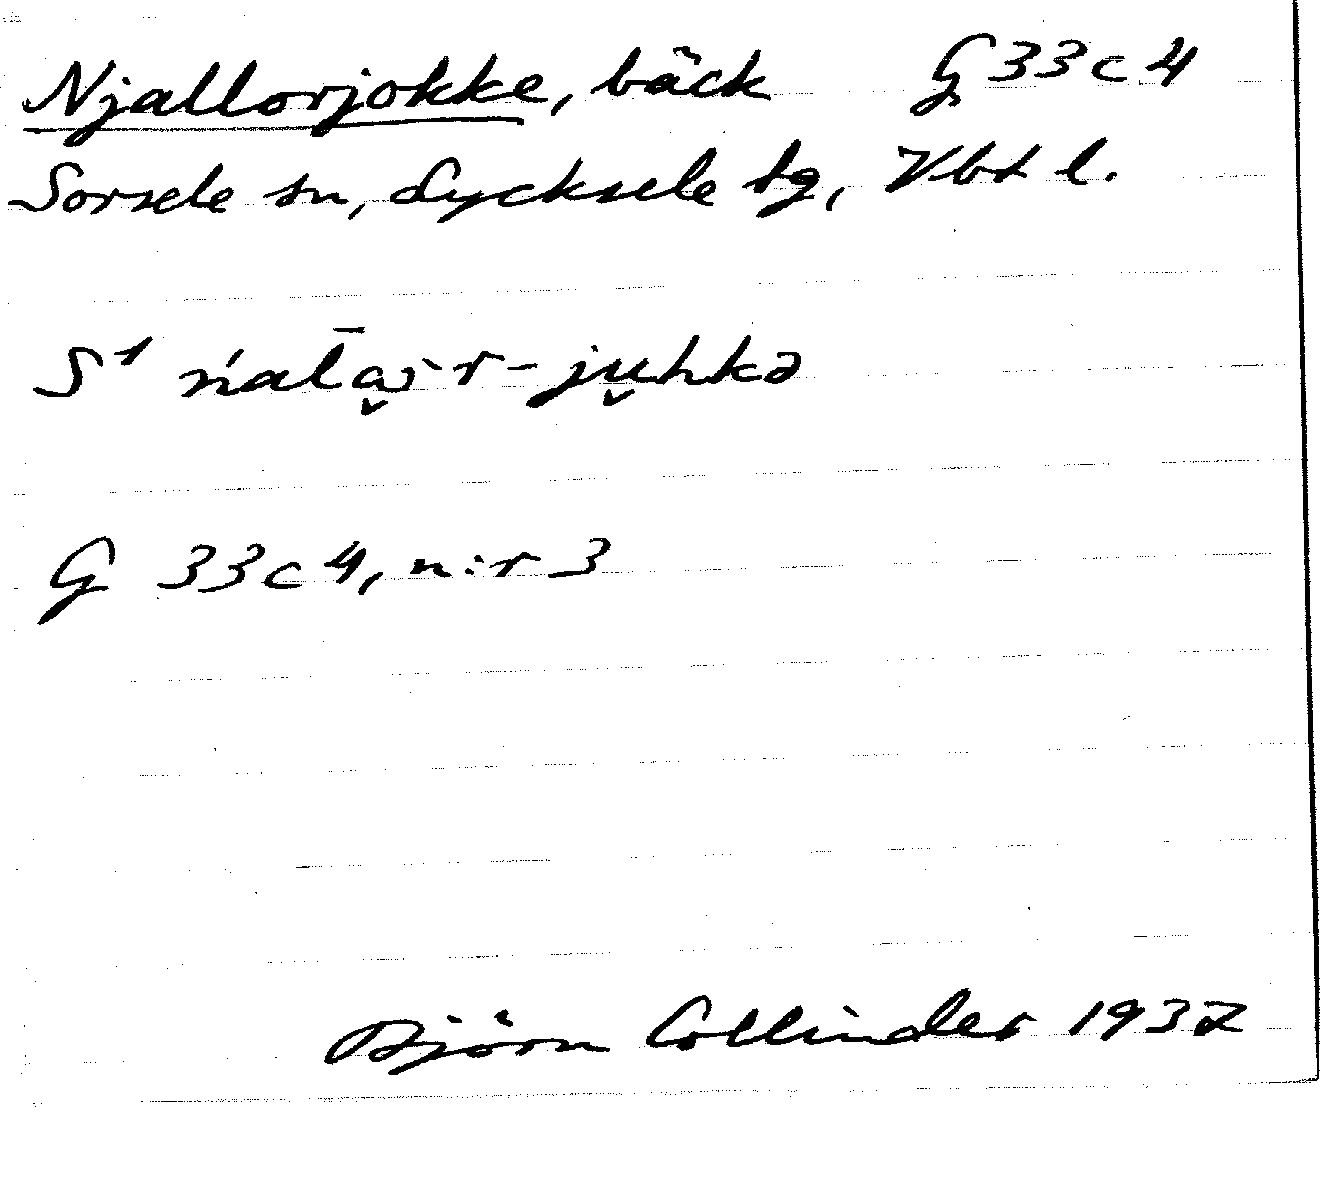 Njallorjokke, bäck G 33 c 4
Sorsele sn, Lycksele tg, Vbt l.
S¹ ńal̄ą̌i-r-jŭhkə
G 33 c 4, n:r 3
Björn Collinder 1937